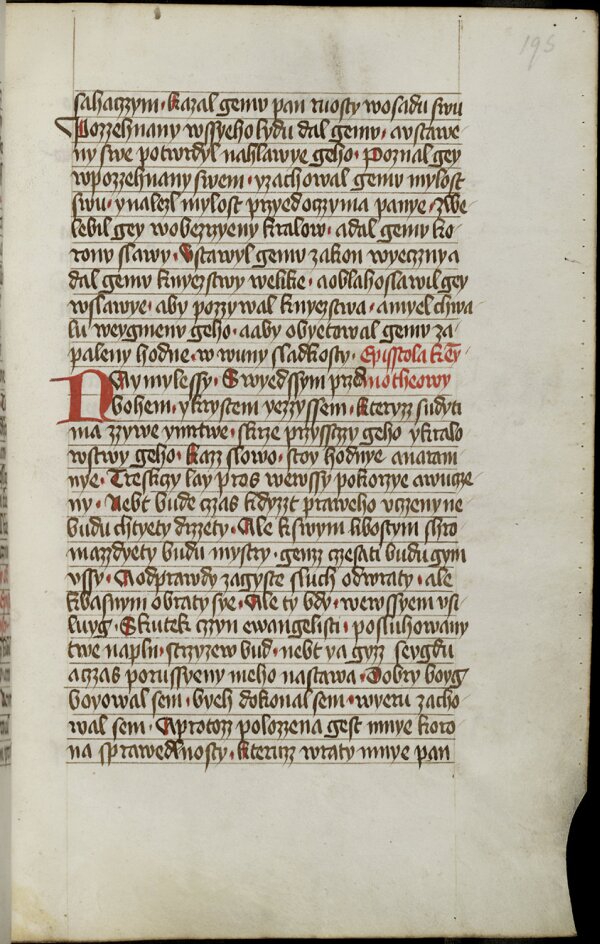 195
sahaczzym · kazal gemu pan ruosty wosadu swu
Pozzehnany wssyeho lydu dal gemu · austawe
ny swe potwrdyl nahlawye geho · Poznal gey
wpozzehnany swem · yzachowal gemu mylost
swu · ynalezl mylost przyedoczyma panye · zwe
lebil gey wobezrzyeny kralow · adal gemu ko
rony slawy · Ustawyl gemu zakon wyeczny a
dal gemu knyezstwy welike · aoblahoslawil gey
wslawye · aby pozzywal knyezstwa · amyel chwa
lu weygmenu geho · aaby obyetowal gemu za
paleny hodne · w wuny sladkosty · Episstola k
Naymylessy · Swyedssym przed motheowy
bohem · ykrystem yezzyssem · kteryzz sudyti
ma zzywe ymrtwe · skrze przyssczy geho ykralo
wstwy geho · kazz slowo · stoy hodnye anaram
nye · Treskczy lay pros wewssy pokorzye awucze
ny · Nebt bude czas kdyzzt praweho uczeny ne
budu chtyety drzzety · Ale kswym libostym shro
mazzdyety budu mystry · genzz czesati budu gym
ussy · Aodprawdy zagyste sluch odwraty · ale
kbasnym obraty sye · Ale ty bdy · wewssyem usi
luyg · Skutek czyn ewangelisti · posluhowany
twe napln · strzyzew bud · nebt ya gyzz seygdu
aczzas porussyeny meho nastawa · Dobry boyg
boyowal sem · byeh dokonal sem · wyeru zacho
wal sem · Aprotozz polozzena gest mnye koro
na sprawedlnosty · kteruzz wraty mnye pan